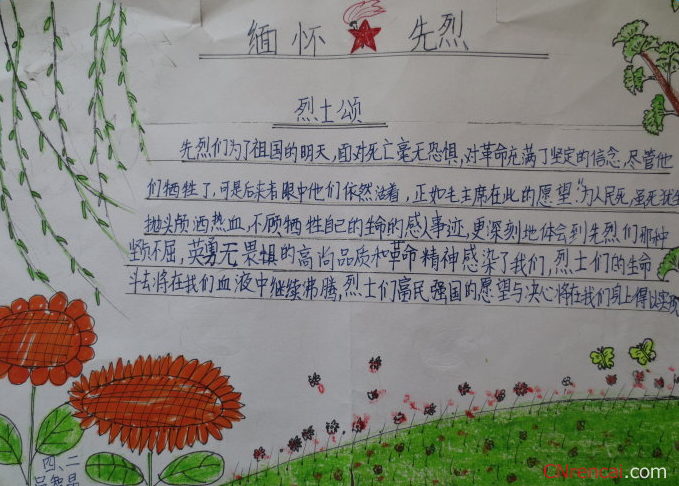 缅怀 先烈
烈士颂
先烈们为了祖国的明天,面对死亡毫无恐惧,对革命充满了坚定的信念,尽管他
们牺牲了,可是后来者眼中他们依然活着,正如毛主席在此的愿望:"为人民死,虽死犹生
抛头颅洒热血,不顾牺牲自己的生命的感人事迹,更深刻地体会到先烈们那种
坚贞不屈,英勇无畏惧的高尚品质和革命精神感染了我们,烈士们的生命
斗去将在我们血液中继续沸腾,烈士们富民强国的愿望与决心将在我们身上得以实现
四、二
CNrencai.com